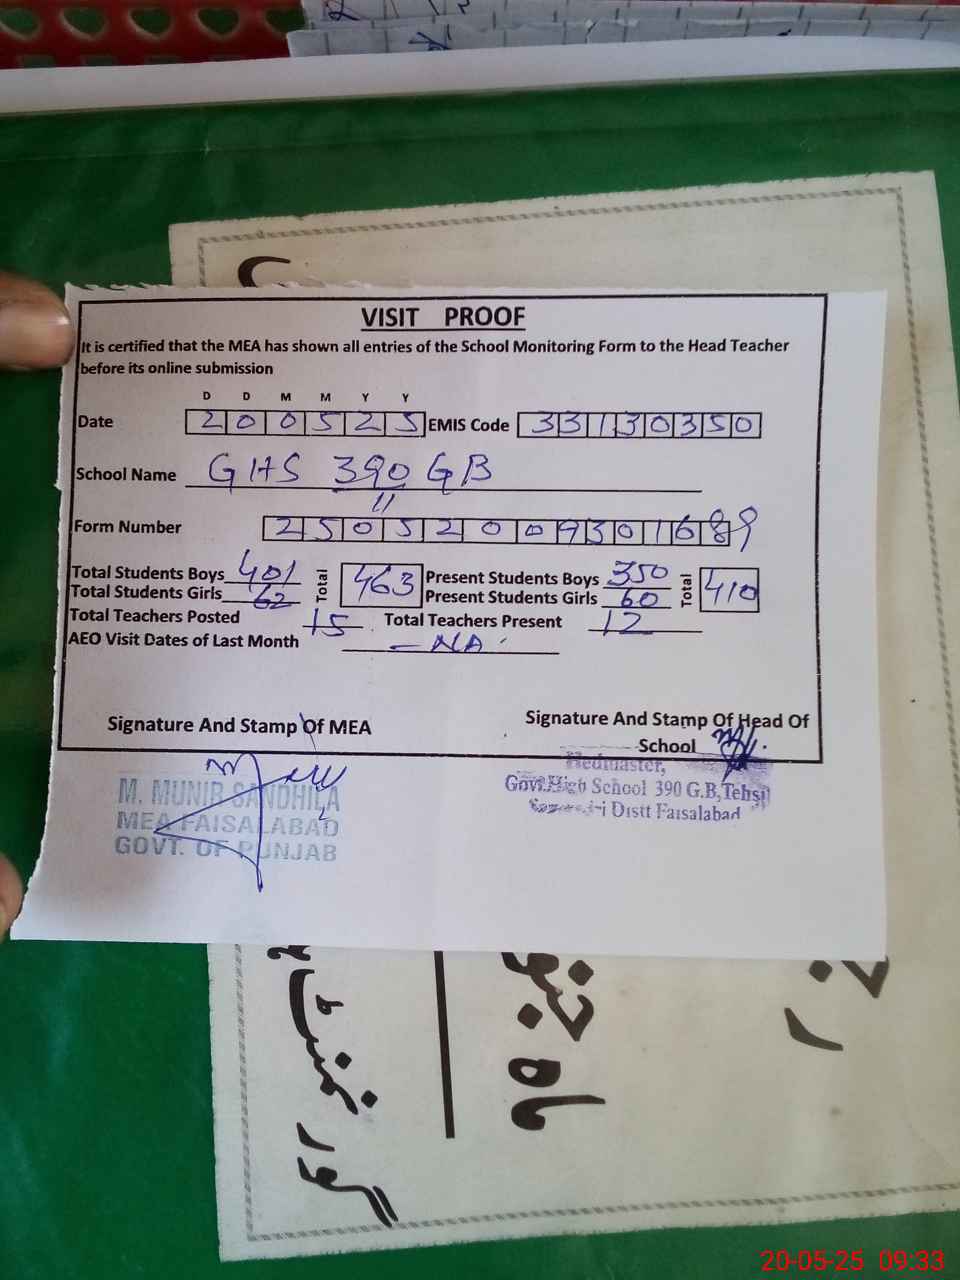 VISIT PROOF
It is certified that the MEA has shown all entries of the School Monitoring Form to the Head Teacher
before its online submission
D D M M Y Y
Date 2 0 0 5 2 5 EMIS Code 3 3 1 3 0 3 5 0
School Name GHS 390 GB
Form Number 2 5 0 5 2 0 0 9 3 0 1 6 8 9
Total Students Boys 401 Total 463 Present Students Boys 350 Total 410
Total Students Girls 62 Present Students Girls 60
Total Teachers Posted 15 Total Teachers Present 12
AEO Visit Dates of Last Month - NA
Signature And Stamp Of MEA Signature And Stamp Of Head Of
School
M. MUNIR SANDHILA
MEA FAISALABAD
GOVT. OF PUNJAB
Hedmaster,
Govt. High School 390 G.B, Tehsi
Distt Faisalabad
ماہ
گورنمنٹ
20-05-25 09:33